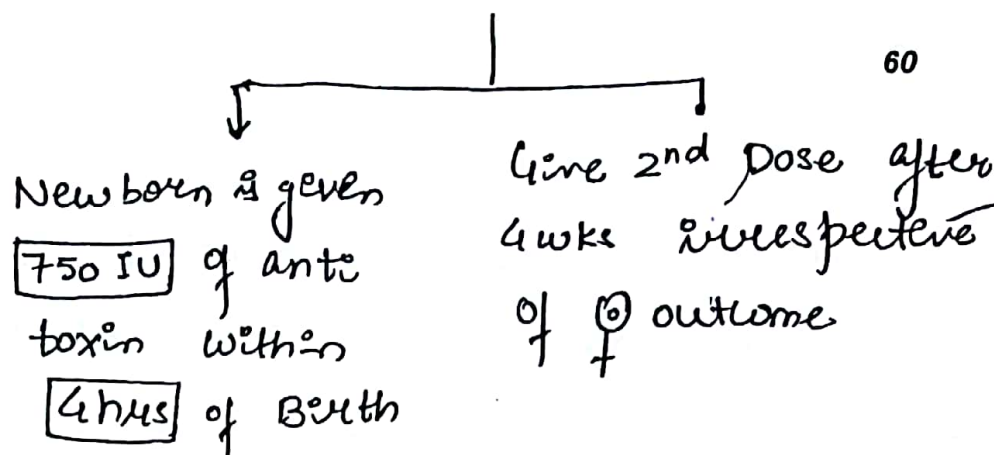 60
Newborn is given
750 IU of anti
toxin within
4hrs of Birth
Give 2nd Dose after
4wks irrespective
of outcome